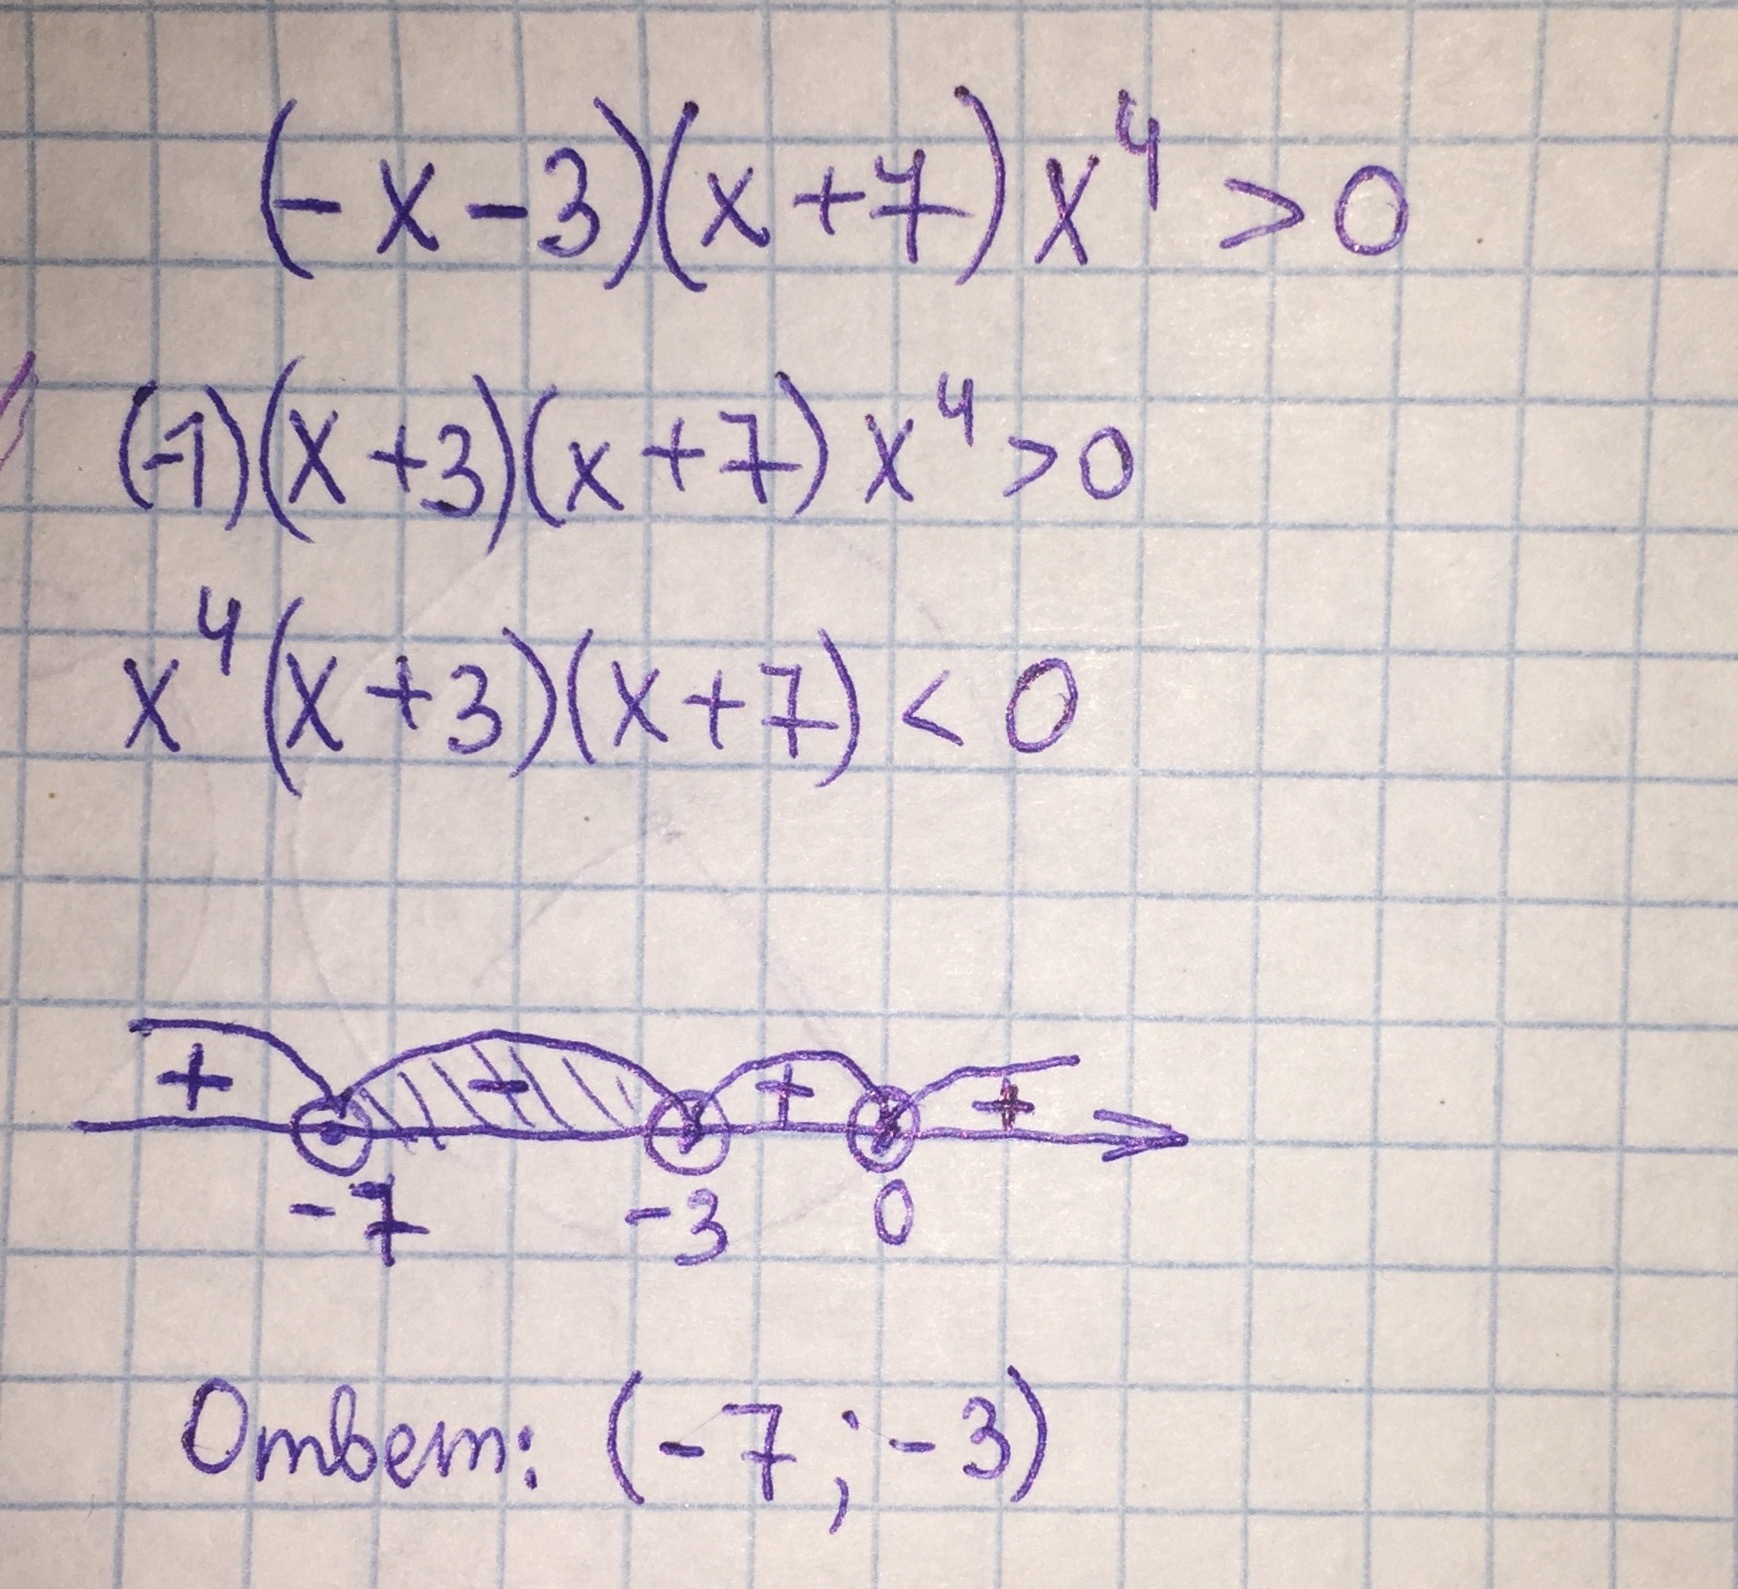 (-x-3)(x+7)x⁴>0
(-1)(x+3)(x+7)x⁴>0
x⁴(x+3)(x+7)<0
+ - + +
-7 -3 0
Ответ: (-7;-3)